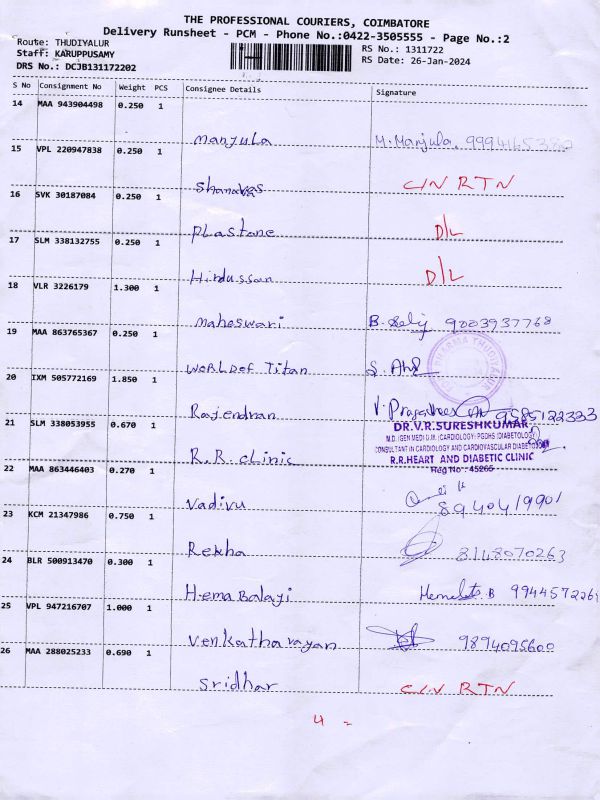 THE PROFESSIONAL COURIERS, COIMBATORE
Delivery Runsheet - PCM - Phone No.:0422-3505555 - Page No.:2
Route: THUDIYALUR
Staff: KARUPPUSAMY
DRS No.: DCJB131172202
RS No.: 1311722
RS Date: 26-Jan-2024
S No Consignment No Weight PCS Consignee Details Signature
14 MAA 943904498 0.250 1
Manjula M. Manjula.
15 VPL 220947838 0.250 1
Shanavas C/N RTN
16 SVK 30187084 0.250 1
Plastone D/L
17 SLM 338132755 0.250 1
Hindussan D/L
18 VLR 3226179 1.300 1
Maheswari B. 9003937768
19 MAA 863765367 0.250 1
WORLDef Titan S.
PHARMA THUDIYALUR
20 IXM 505772169 1.850 1
Rajendran 9585122333
21 SLM 338053955 0.670 1
DR.V.R.SURESHKUMAR
M.D.(GEN MED) D.M.(CARDIOLOGY) PGDHS (DIABETOLOGY)
CONSULTANT IN CARDIOLOGY AND CARDIOVASCULAR DIABETOLOGY
R.R. clinic R.R.HEART AND DIABETIC CLINIC
Reg No : 45265
22 MAA 863446403 0.270 1
Vadivu 8940419901
23 KCM 21347986 0.750 1
Rekha 8148070263
24 BLR 500913470 0.300 1
Hema Balaji B 9944572261
25 VPL 947216707 1.000 1
Venkatharayan 9894095600
26 MAA 288025233 0.690 1
Sridhar C/N RTN
4 =